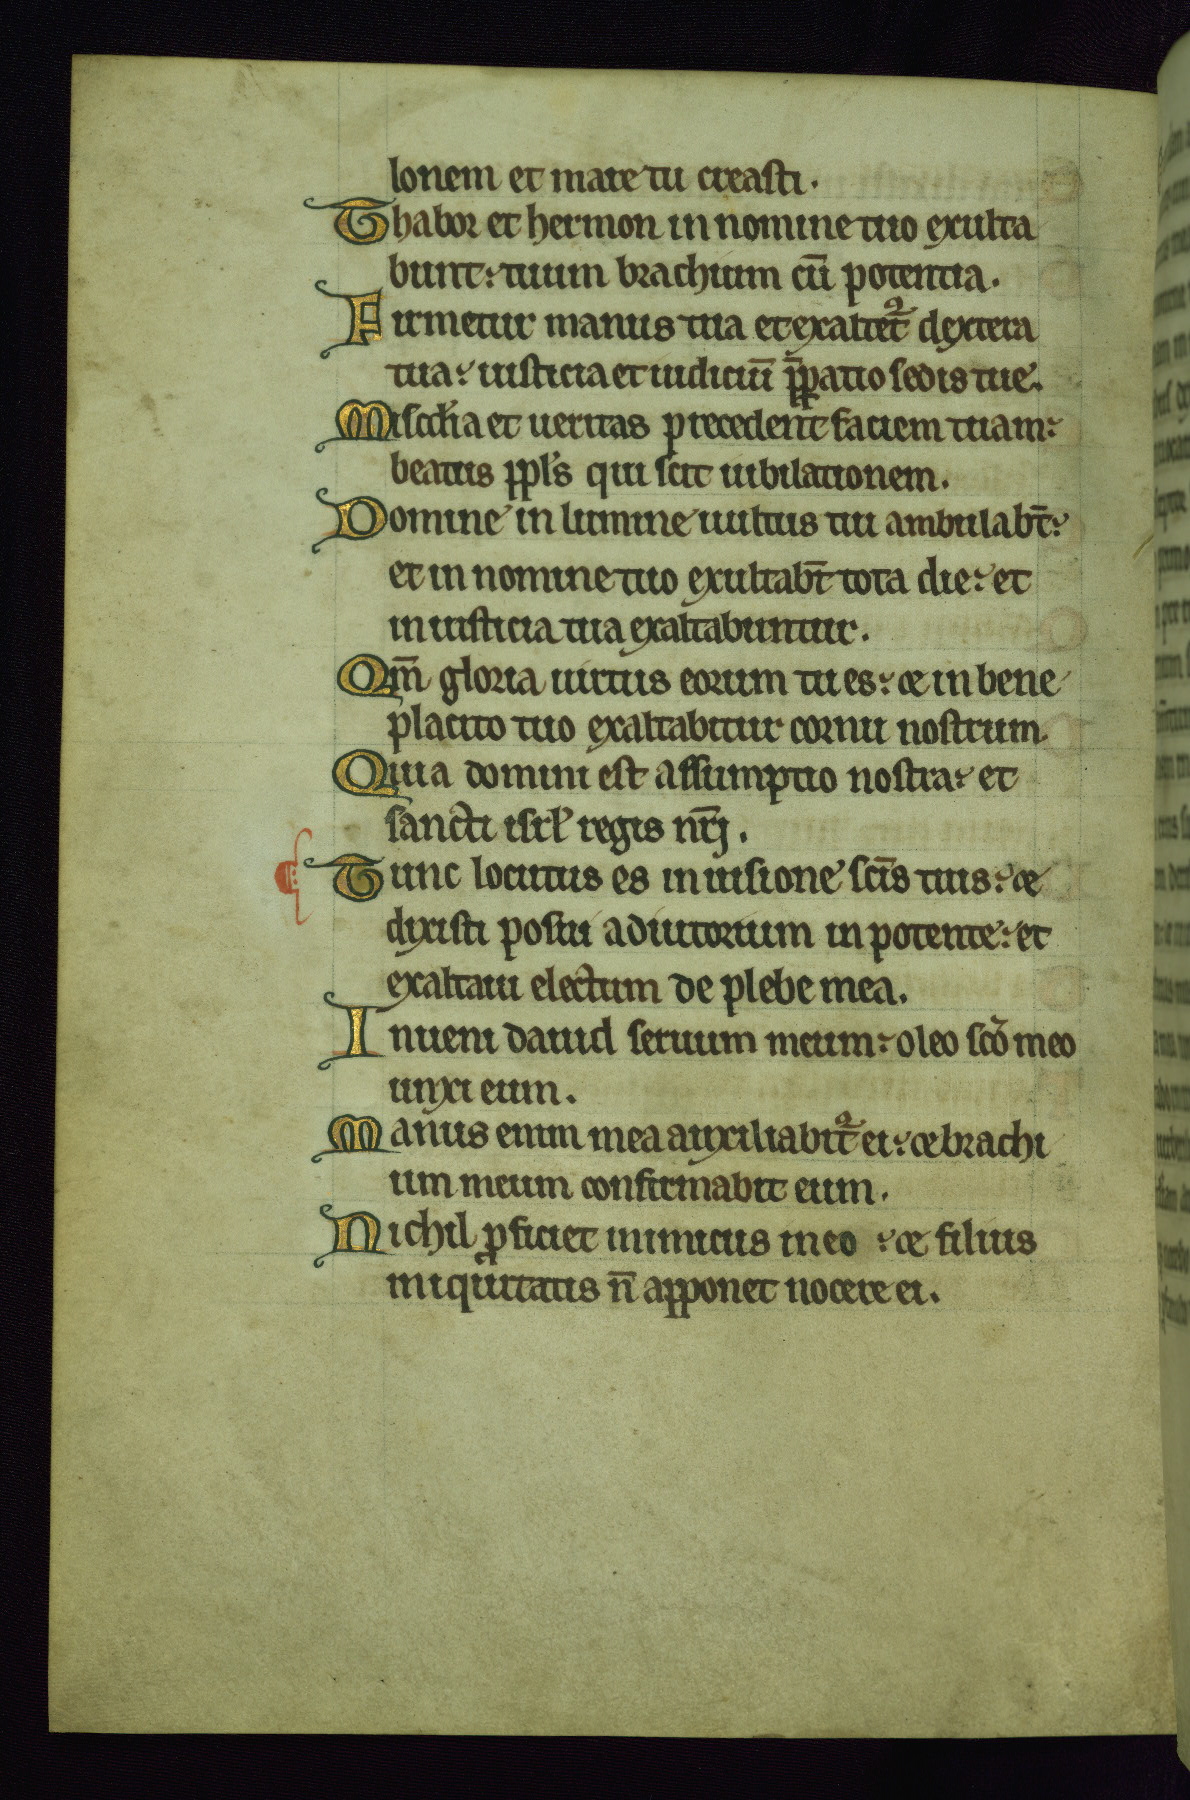 lonem et mare tu creasti.
Thabor et hermon in nomine tuo exulta
bunt: tuum brachium cū potentia.
Firmetur manus tua et exaltet᷑ dextera
tua: iusticia et iudiciū p̄paratio sedis tue.
Miscdia et ueritas precedent faciem tuam:
beatus ppls qui scit iubilationem.
Domine in lumine uultus tui ambulabt̄:
et in nomine tuo exultabt̄ tota die: et
in iusticia tua exaltabuntur.
Qm̄ gloria uirtus eorum tu es: & in bene
placito tuo exaltabitur cornu nostrum.
Quia domini est assumptio nostra: et
sancti isrl regis nr̄j.
Tunc locutus es in uisione sc̄is tuis: &
dixisti posui adiutorium in potente: et
exaltaui electum de plebe mea.
Inueni dauid seruum meum: oleo scō meo
unxi eum.
Manus enim mea auxiliabit᷑ ei: & brachi
um meum confirmabit eum.
Nichil ꝓficiet inimicus in eo : & filius
iniquitatis n̄ apponet nocere ei.